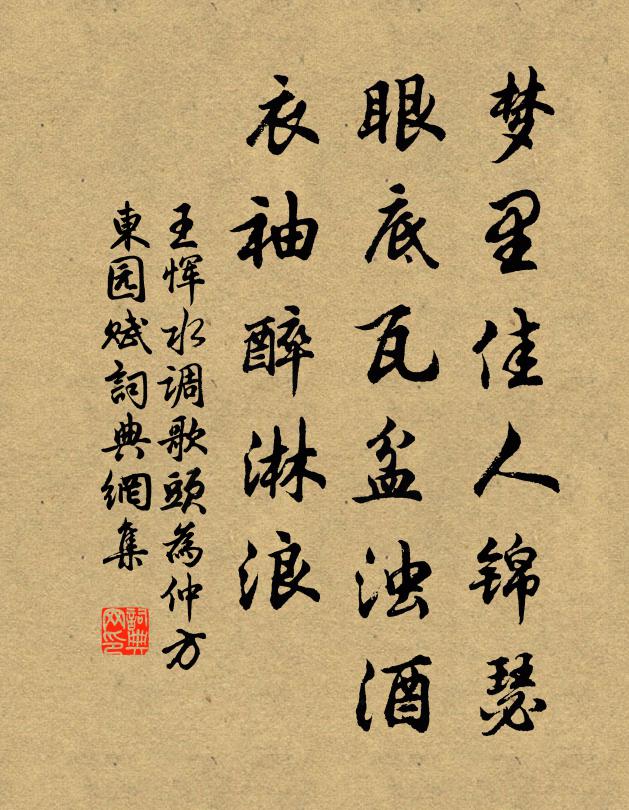 梦里佳人锦瑟
眼底瓦盆浊酒
衣袖醉淋浪
王恽水调歌頭為仲方
東园赋詞典網集
詞典网印